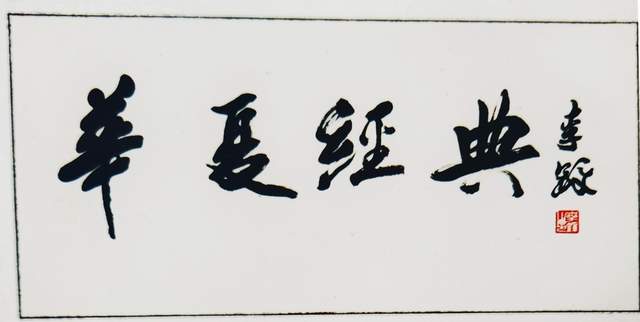 華夏經典
李